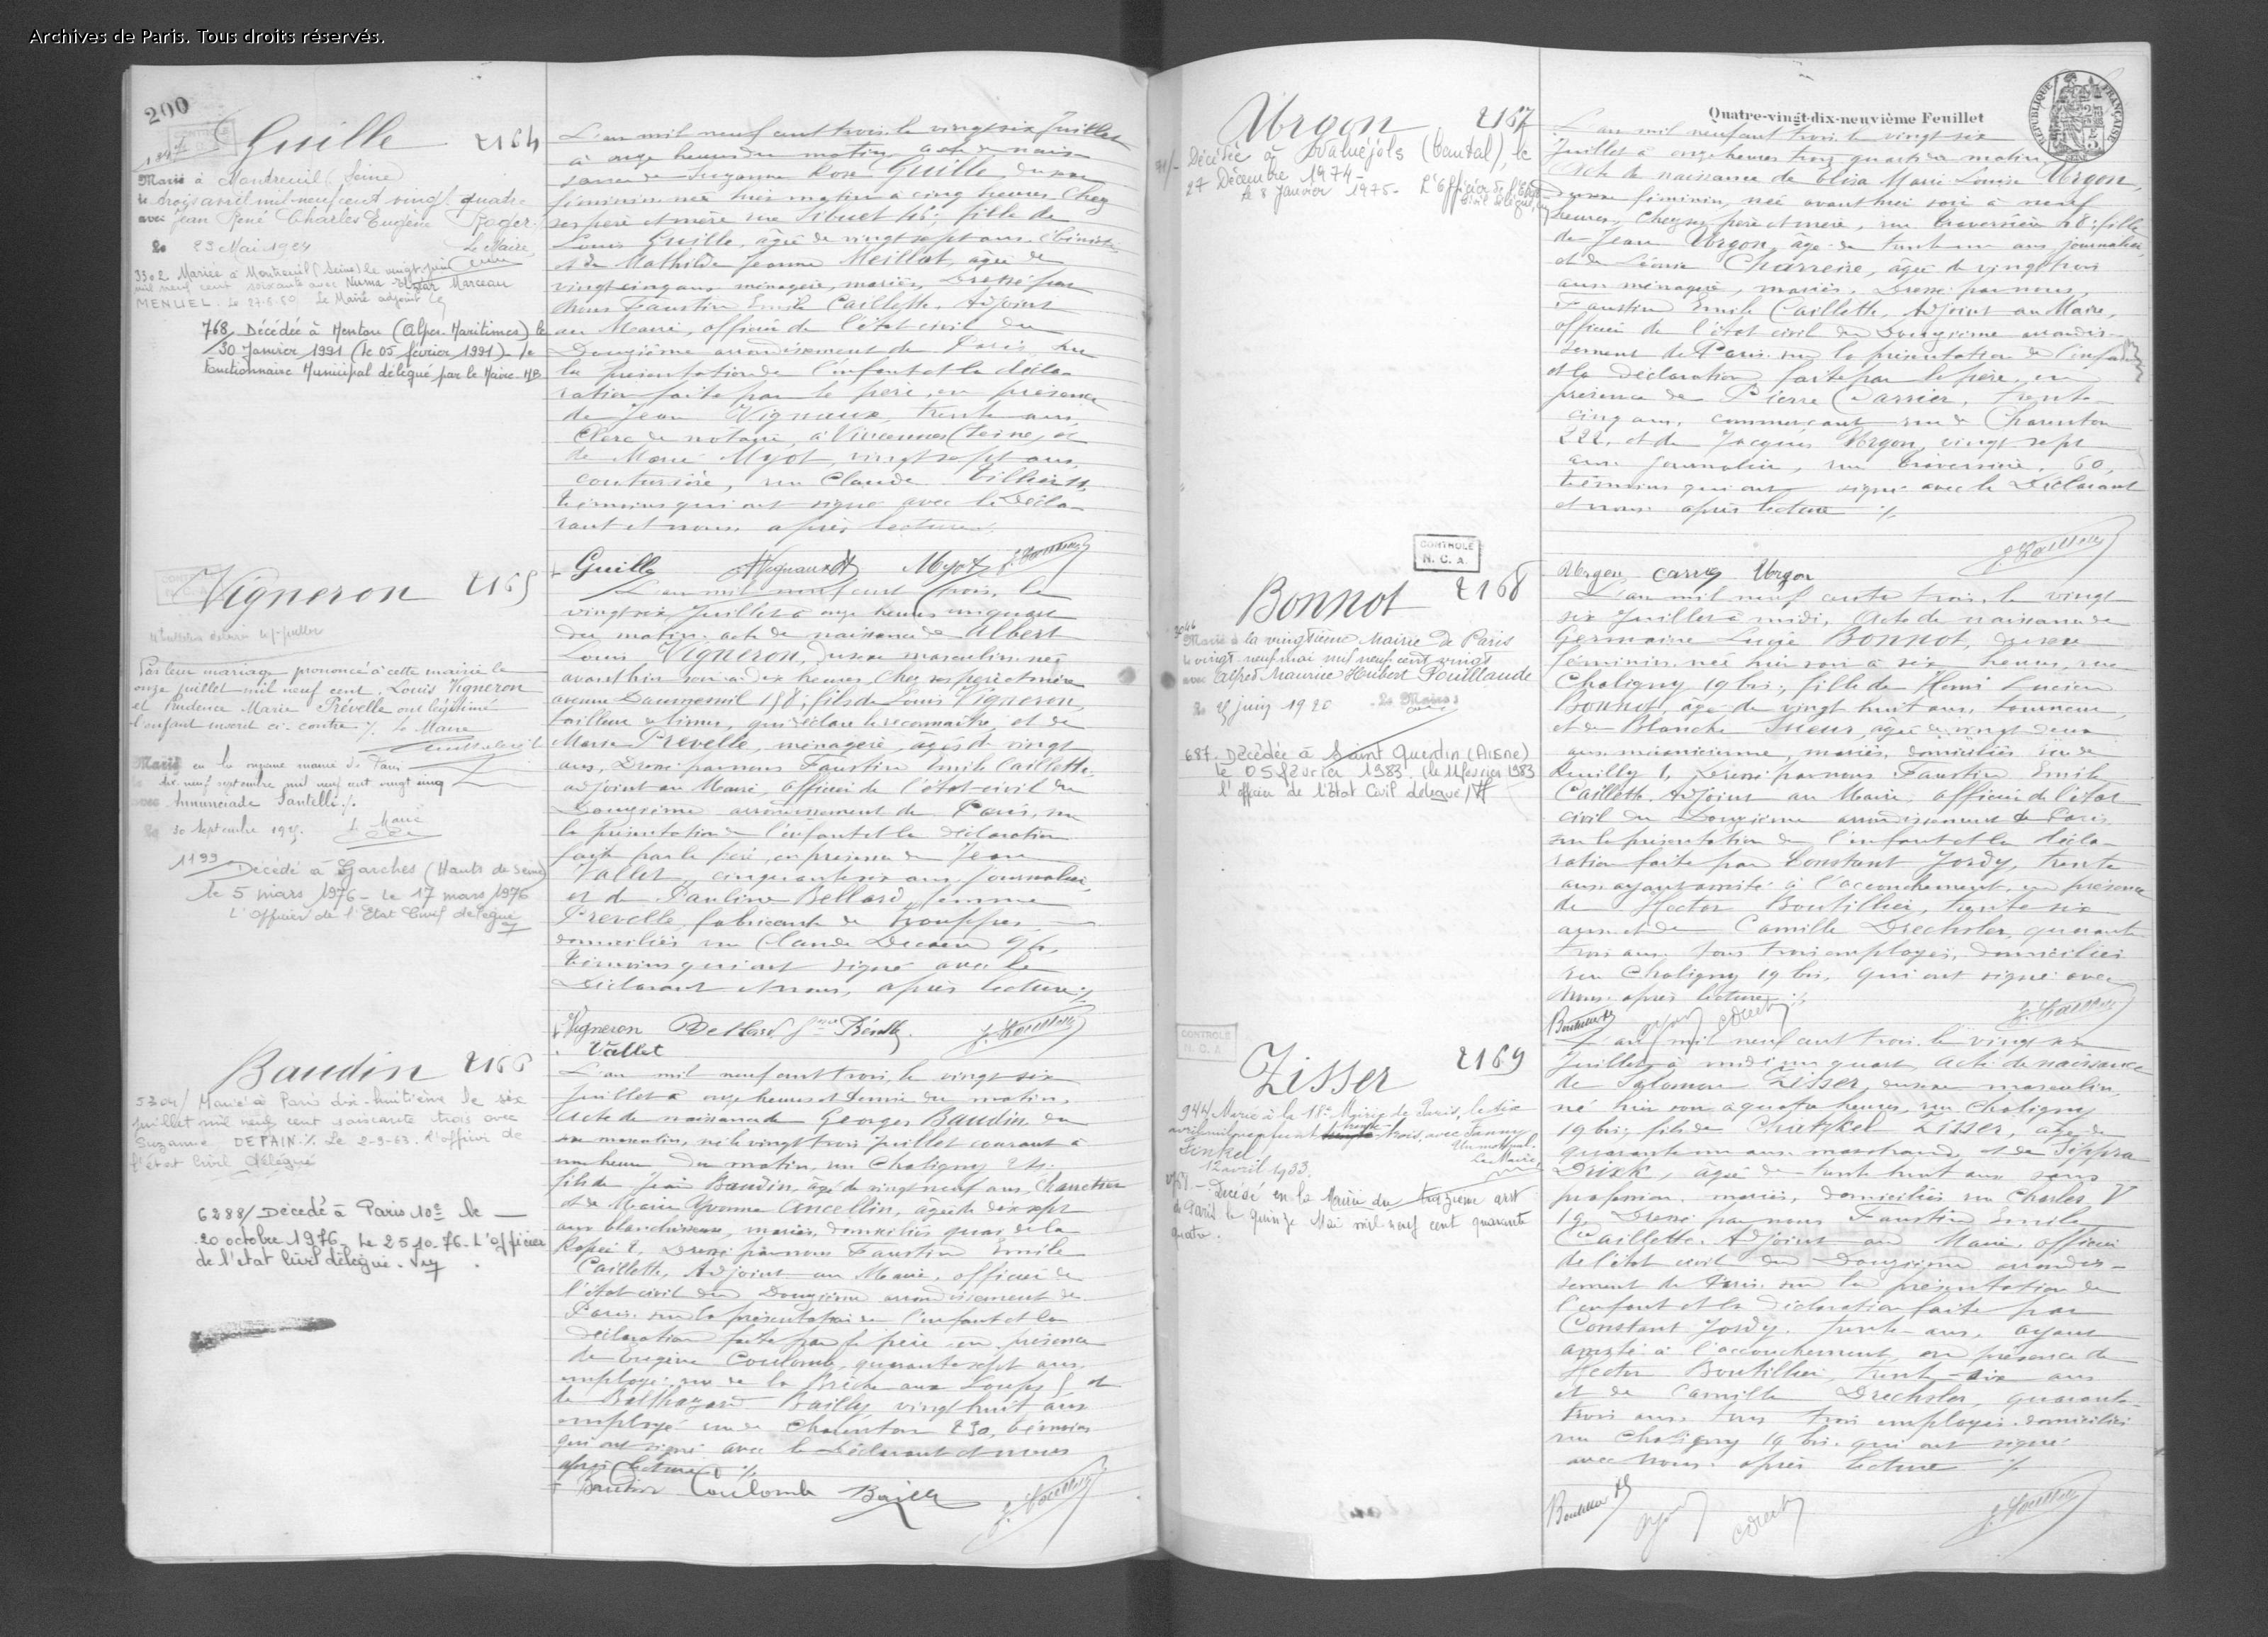 Archives de Paris. Tous droits réservés.
200
Guille 2164
Marié à Montreuil (Seine)
le trois avril mil neuf cent vingt quatre
avec Jean René Charles Eugène Roger
Le 23 Mai 1924 Le Maire
3302 Mariée à Montreuil (Seine) le vingt juin
mil neuf cent soixante avec Numa Marceau
MENUEL. Le 27.6.60 Le Maire adjoint
768 Décédée à Menton (Alpes-Maritimes) le
30 Janvier 1991 (le 05 février 1991) - le
fonctionnaire Municipal délégué par le Maire. MB
L'an mil neuf cent trois, le vingt six Juillet
à onze heures du matin acte de nais-
sance de Suzanne Rose Guille, du sexe
féminin née hier matin à cinq heures, chez
ses père et mère rue Sibuet 46; fille de
Louis Guille, âgé de vingt sept ans, ébéniste
et de Mathilde Jeanne Meillat, âgée de
vingt cinq ans, ménagère, mariés. Dressé par
Nous Faustin Emile Caillette, Adjoint
au Maire, officier de l'état civil du
Douzième arrondissement de Paris, sur
la présentation de l'enfant et la décla-
ration faite par le père, en présence
de Jean Vignaux, trente ans
Clerc de notaire, à Vincennes (Seine) et
de Marie Myot, vingt sept ans,
couturière, rue Claude Tillier 11,
témoins qui ont signé avec le Décla-
rant et nous, après lecture.
Guille Vignaux Myot F. Caillette
Vigneron 2165
Par leur mariage prononcé à cette mairie le
onze juillet mil neuf cent, Louis Vigneron
et Prudence Marie Prévelle ont légitimé
l'enfant inscrit ci-contre ./. Le Maire
Marié en la onzième mairie de Paris
dix neuf septembre mil neuf cent vingt cinq
avec Annunciade Santelli ./.
Le 30 Septembre 1925. Le Maire
1199 Décédé à Garches (Hauts de Seine)
le 5 mars 1976 - Le 17 mars 1976
L'Officier de l'Etat Civil délégué
L'an mil neuf cent trois, le
vingt six Juillet à onze heures un quart
du matin. acte de naissance de Albert
Louis Vigneron, du sexe masculin, né
avant hier soir à dix heures, chez ses père et mère
avenue Daumesnil 158; fils de Louis Vigneron,
tailleur de limes, qui déclare le reconnaître, et de
Marie Prevelle, ménagère, âgés de vingt
ans, Dressé par nous Faustin Emile Caillette,
adjoint au Maire, officier de l'état civil du
Douzième arrondissement de Paris, sur
la présentation de l'enfant et la déclaration
faite par le père, en présence de Jean
Vallet, cinquante six ans, journalier,
et de Pauline Bellard, femme
Prevelle, fabricante de
domiciliés rue Claude Decaen 96,
témoins qui ont signé avec le
Déclarant et nous, après lecture ./.
Vigneron Bellard fme Prévelle F. Caillette
Vallet
Baudin 2166
5304/ Marié à Paris dix-huitième le six
juillet mil neuf cent soixante trois avec
Suzanne DEPAIN ./. Le 2-9-63. l'officier de
l'état civil délégué
6288/ Décédé à Paris 10e le
20 octobre 1976. Le 25.10.76. L'officier
de l'état civil délégué.
L'an mil neuf cent trois, le vingt six
Juillet à onze heures et demie du matin,
Acte de naissance de Georges Baudin, du
sexe masculin, né le vingt trois Juillet courant à
une heure du matin, rue Chaligny 21.
fils de Jean Baudin, âgé de vingt neuf ans,
et de Marie Yvonne Ancellin, âgée de dix sept
ans blanchisseuse, mariés, domiciliés quai de la
Rapée 2. Dressé par nous Faustin Emile
Caillette, Adjoint au Maire, officier de
l'état civil du Douzième arrondissement de
Paris, sur la présentation de l'enfant et la
déclaration faite par le père en présence
de Eugène Coulomb, quarante sept ans
employé, rue de la Brèche aux Loups 5 et
de Balthazard Bailly vingt huit ans
employé rue de Charenton 230, témoins
qui ont signé avec le Déclarant et nous
après lecture ./.
Baudin Coulomb Bailly F. Caillette
Urgon 2167
Décédée à Valuéjols (Cantal), le
27 Décembre 1974 -
Le 8 Janvier 1975 - L'Officier de l'Etat
Civil délégué,
Quatre-vingt-dix-neuvième Feuillet
RÉPUBLIQUE FRANÇAISE
L'an mil neuf cent trois, le vingt six
Juillet à onze heures trois quarts du matin,
Acte de naissance de Elisa Marie Louise Urgon,
du sexe féminin, née avant hier soir à neuf
heures, chez ses père et mère, rue Traversière 48; fille
de Jean Urgon, âgé de trente un ans, journalier
et de Léonie Charreire, âgée de vingt trois
ans ménagère, mariés. Dressé par nous,
Faustin Emile Caillette, Adjoint au Maire,
officier de l'état civil du Douzième arrondis-
sement de Paris, sur la présentation de l'enfant
et la déclaration faite par le père, en
présence de Pierre Carrier, trente
cinq ans, commerçant rue de Charenton
222, et de Jacques Urgon, vingt sept
ans journalier, rue Traversière, 60,
témoins qui ont signé avec le Déclarant
et nous après lecture ./.
Urgon Urgon F. Caillette
CONTROLE
N. C. A.
Bonnot 2168
Marié à la vingtième Mairie de Paris
le vingt neuf mai mil neuf cent vingt
avec Alfred Maurice Hubert Fouillaude
Le 25 juin 1920 Le Maire
687. Décédée à Saint Quentin (Aisne)
le 05 février 1983. (le 11 février 1983
l'officier de l'Etat Civil délégué
L'an mil neuf cent trois, le vingt
six Juillet à midi, Acte de naissance de
Germaine Lucie Bonnot, du sexe
féminin, née hier soir à six heures, rue
Chaligny 19 bis; fille de Henri Lucien
Bonnot, âgé de vingt huit ans, tourneur,
et de Blanche Sueur, âgée de vingt deux
ans mécanicienne, mariés, domiciliés rue de
Reuilly 1, Dressé par nous Faustin Emile
Caillette, Adjoint au Maire, officier de l'état
civil du Douzième arrondissement de Paris,
sur la présentation de l'enfant et la décla-
ration faite par Constant Jordy, trente
ans ayant assisté à l'accouchement, en présence
de Hector Boutillier, trente six
ans et de Camille Drechsler, quarante
trois ans, tous trois employés, domiciliés
rue Chaligny 19 bis, qui ont signé avec
Nous après lecture ./.
F. Caillette
CONTROLE
N. C. A.
Zisser 2169
944 Marié à la 18e Mairie de Paris, le dix
avril mil neuf cent trente trois, avec Fanny
Finkel. Un mot nul.
12 avril 1933. Le Maire
Décédé en la Mairie du treizième arrt
de Paris le quinze Mai mil neuf cent quarante
quatre.
L'an mil neuf cent trois, le vingt six
Juillet à midi un quart, acte de naissance
de Salomon Zisser, du sexe masculin,
né hier soir à quatre heures, rue Chaligny
19 bis; fils de Chatzkel Zisser, âgé de
quarante un ans, marchand, et de Sippra
Drixk, âgée de trente huit ans sans
profession, mariés, domiciliés rue Charles V
19, Dressé par nous Faustin Emile
Caillette, Adjoint au Maire, officier
de l'état civil du Douzième arrondis-
sement de Paris, sur la présentation de
l'enfant et la déclaration faite par
Constant Jordy, trente ans, ayant
assisté à l'accouchement, en présence de
Hector Boutillier, trente-six ans
et de Camille Drechsler, quarante
trois ans, tous trois employés domiciliés
rue Chaligny 19 bis, qui ont signé
avec Nous après lecture ./.
F. Caillette